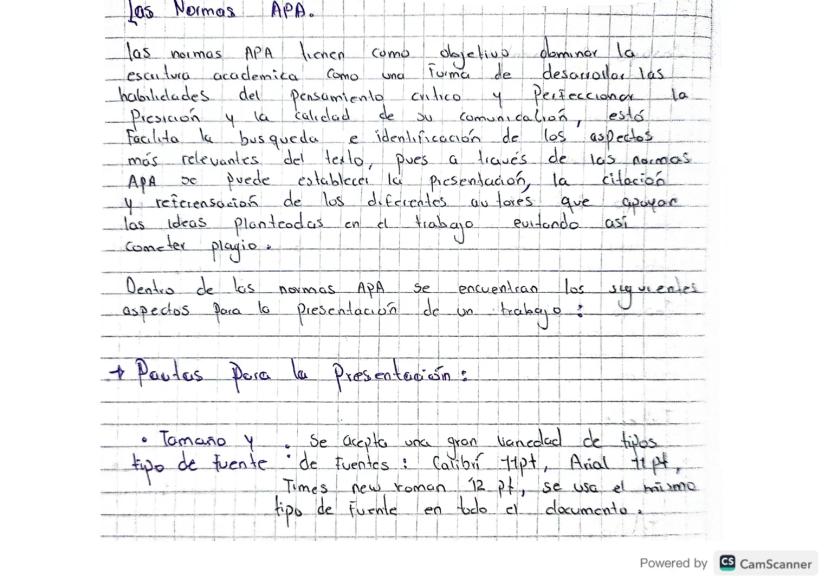 Las Normas APA.
las normas APA tienen como objetivo dominar la
escritura academica como una forma de desarrollar las
habilidades del pensamiento critico y Perfeccionar la
Presición y la calidad de su comunicación, estó
Facilita la busqueda e identificación de los aspectos
más relevantes del texto, pues a través de las normas
APA se puede establecer la presentación, la citación
y referensación de los diferentes autores que apoyan
las ideas planteadas en el trabajo evitando así
cometer plagio.
Dentro de las normas APA se encuentran los siguientes
aspectos para la presentación de un trabajo:
→ Pautas para la Presentación:
• Tamaño y : Se acepta una gran variedad de tipos
tipo de fuente : de fuentes: Calibri 11pt, Arial 11pt,
Times new roman 12 pt, se usa el mismo
tipo de fuente en todo el documento.
Powered by CS CamScanner